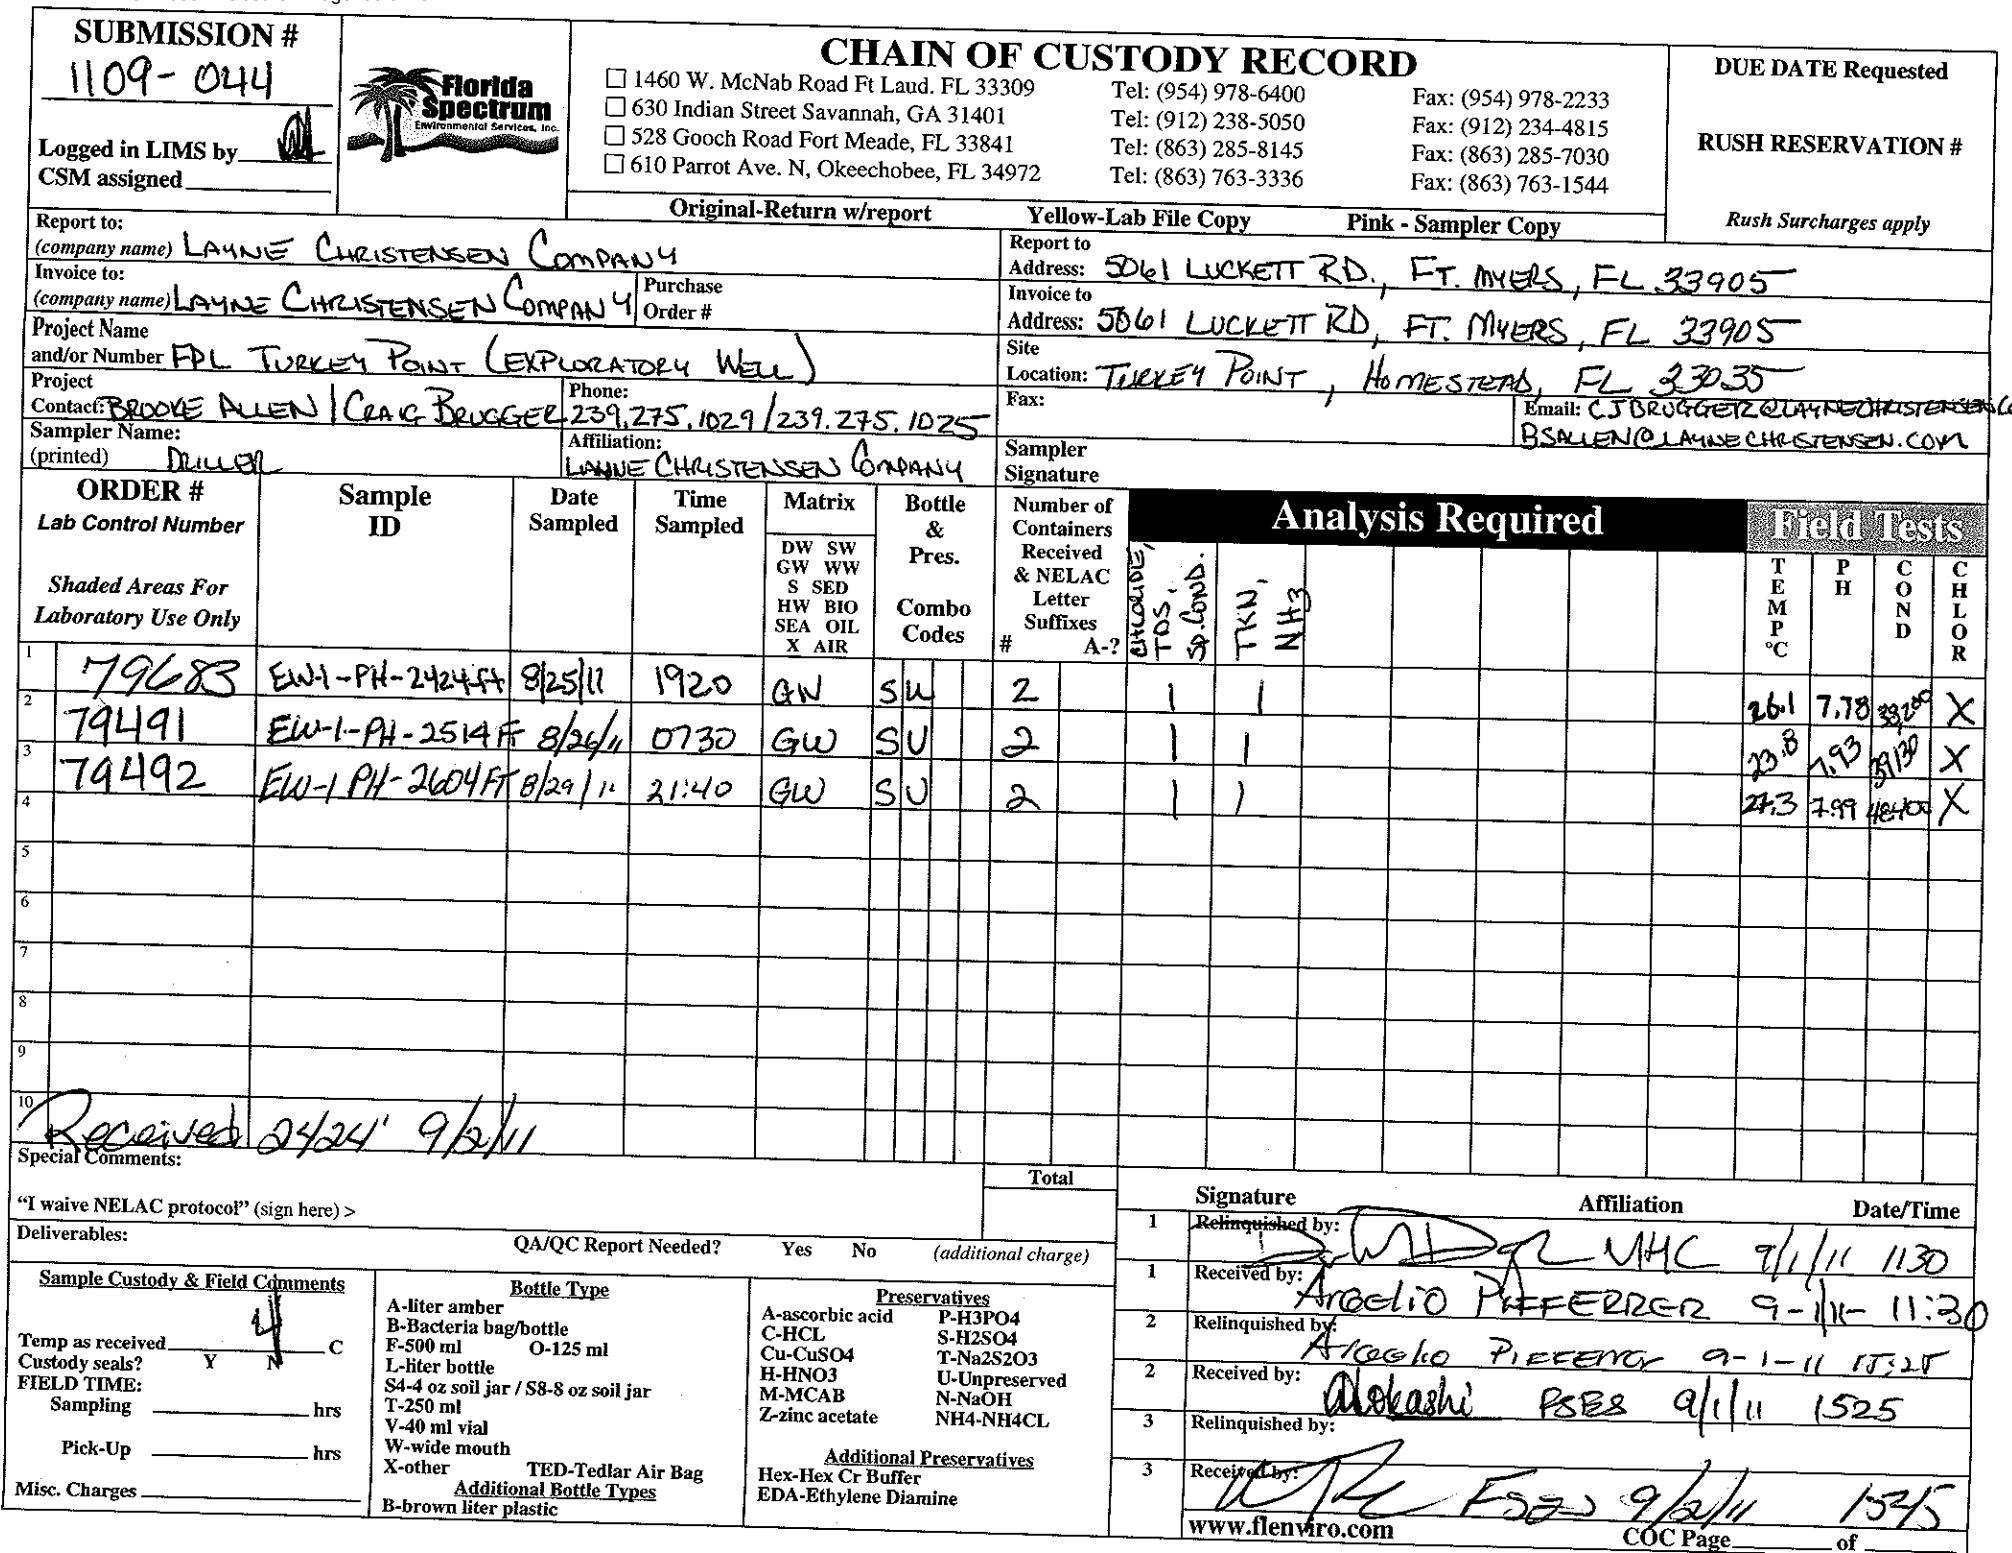 SUBMISSION #
1109-044
Logged in LIMS by
CSM assigned
Florida
Spectrum
Environmental Services, Inc.
CHAIN OF CUSTODY RECORD
☐ 1460 W. McNab Road Ft Laud. FL 33309 Tel: (954) 978-6400 Fax: (954) 978-2233
☐ 630 Indian Street Savannah, GA 31401 Tel: (912) 238-5050 Fax: (912) 234-4815
☐ 528 Gooch Road Fort Meade, FL 33841 Tel: (863) 285-8145 Fax: (863) 285-7030
☐ 610 Parrot Ave. N, Okeechobee, FL 34972 Tel: (863) 763-3336 Fax: (863) 763-1544
Original-Return w/report Yellow-Lab File Copy Pink - Sampler Copy
DUE DATE Requested
RUSH RESERVATION #
Rush Surcharges apply
Report to:
(company name) LAYNE CHRISTENSEN COMPANY
Report to
Address: 5061 LUCKETT RD., FT. MYERS, FL 33905
Invoice to:
(company name) LAYNE CHRISTENSEN COMPANY
Purchase
Order #
Invoice to
Address: 5061 LUCKETT RD, FT. MYERS, FL 33905
Project Name
and/or Number FPL TURKEY POINT (EXPLORATORY WELL)
Site
Location: TURKEY POINT, HOMESTEAD, FL 33035
Project
Contact: BROOKE ALLEN / CRAIG BRUGGER
Phone:
239.275.1029 / 239.275.1025
Fax:
Email: CJBRUGGER@LAYNECHRISTENSEN.CO
BSALLEN@LAYNECHRISTENSEN.COM
Sampler Name:
(printed) DRILLER
Affiliation:
LAYNE CHRISTENSEN COMPANY
Sampler
Signature
ORDER #
Lab Control Number
Shaded Areas For
Laboratory Use Only
Sample
ID
Date
Sampled
Time
Sampled
Matrix
DW SW
GW WW
S SED
HW BIO
SEA OIL
X AIR
Bottle
&
Pres.
Combo
Codes
Number of
Containers
Received
& NELAC
Letter
Suffixes
# A-?
Analysis Required
CHLORIDE,
TDS,
SP. COND.
TKN,
NH3
Field Tests
TEMP °C
PH
COND
CHLOR
1 79683 EW-1-PH-2424ft 8/25/11 1920 GW S U 2 1 1 26.1 7.78 38,200 X
2 79491 EW-1-PH-2514 FT 8/26/11 0730 GW S U 2 1 1 23.8 7.93 39130 X
3 79492 EW-1 PH-2604 FT 8/29/11 21:40 GW S U 2 1 1 27.3 7.99 48400 X
4
5
6
7
8
9
10
Received 2424' 9/2/11
Special Comments:
Total
"I waive NELAC protocol" (sign here) >
Deliverables:
QA/QC Report Needed? Yes No (additional charge)
Sample Custody & Field Comments
Temp as received 4 C
Custody seals? Y N
FIELD TIME:
Sampling hrs
Pick-Up hrs
Misc. Charges
Bottle Type
A-liter amber
B-Bacteria bag/bottle
F-500 ml O-125 ml
L-liter bottle
S4-4 oz soil jar / S8-8 oz soil jar
T-250 ml
V-40 ml vial
W-wide mouth
X-other TED-Tedlar Air Bag
Additional Bottle Types
B-brown liter plastic
Preservatives
A-ascorbic acid P-H3PO4
C-HCL S-H2SO4
Cu-CuSO4 T-Na2S2O3
H-HNO3 U-Unpreserved
M-MCAB N-NaOH
Z-zinc acetate NH4-NH4CL
Additional Preservatives
Hex-Hex Cr Buffer
EDA-Ethylene Diamine
Signature Affiliation Date/Time
1 Relinquished by: 9/1/11 1130
1 Received by: ARGELIO PIFFERRER 9-1-11- 11:30
2 Relinquished by: 9-1-11 15:25
2 Received by: 9/1/11 1525
3 Relinquished by:
3 Received by: 9/2/11
www.flenviro.com COC Page of